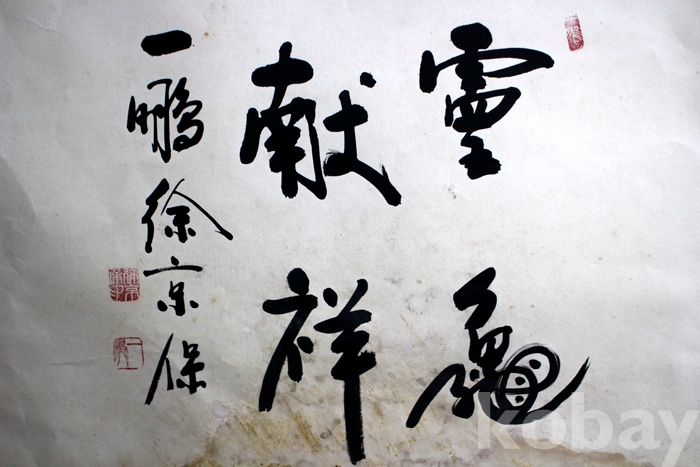 靈龜
献祥
一鵬徐京保
kobay